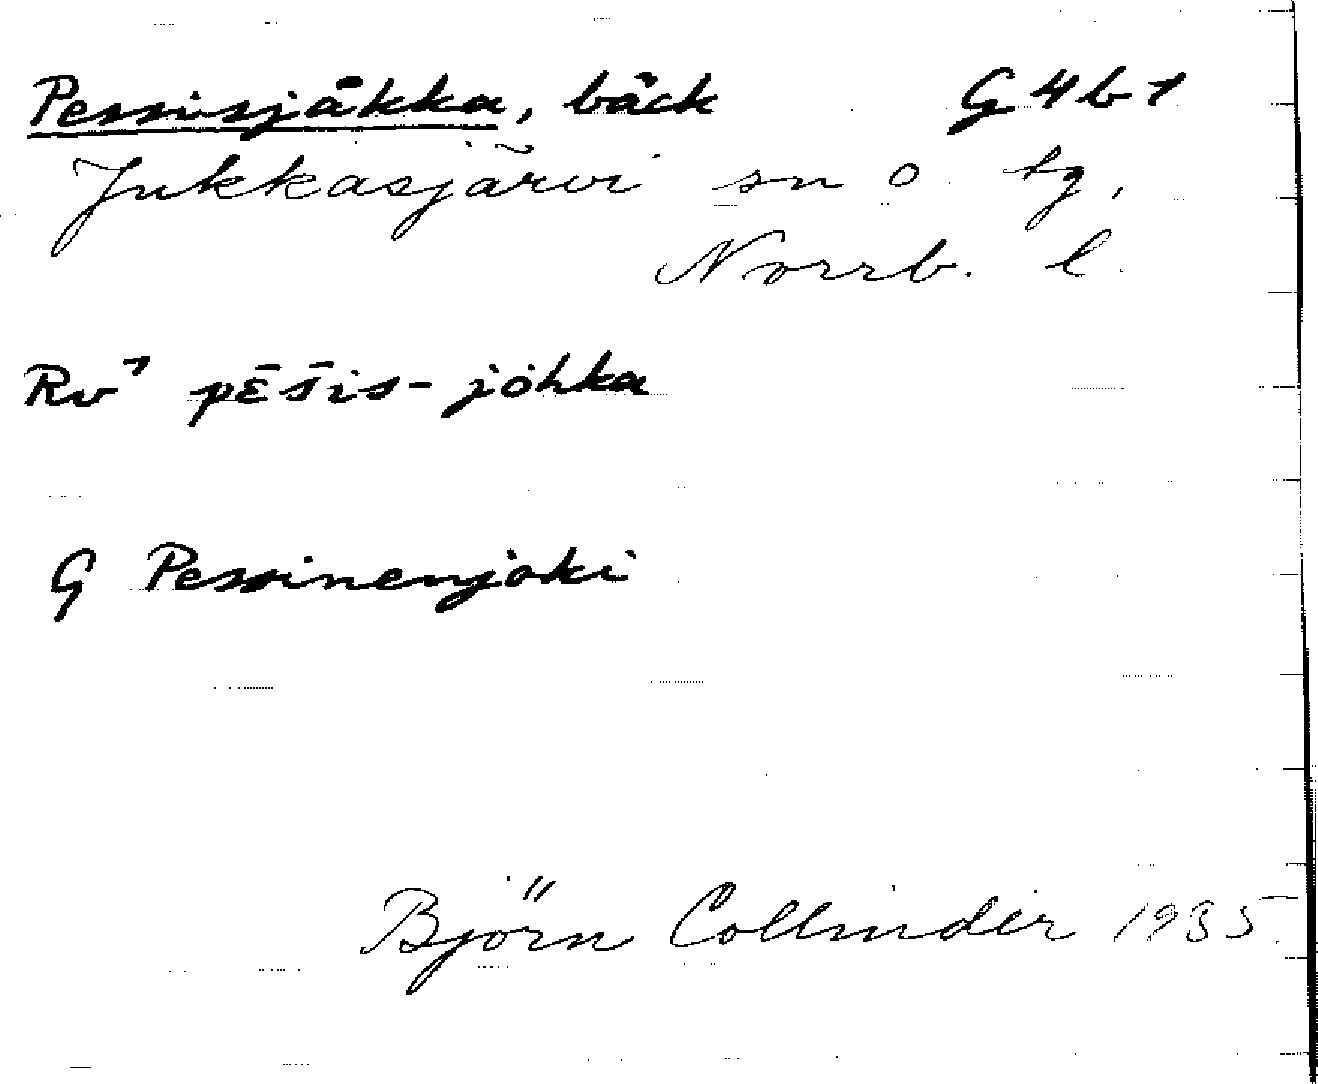 Pessisjåkka, bäck G4b1
Jukkasjärvi sn o tg,
Norrb. l.
Rv⁷ pē̆s̄is-jòhka
G Pessinenjoki
Björn Collinder 1935